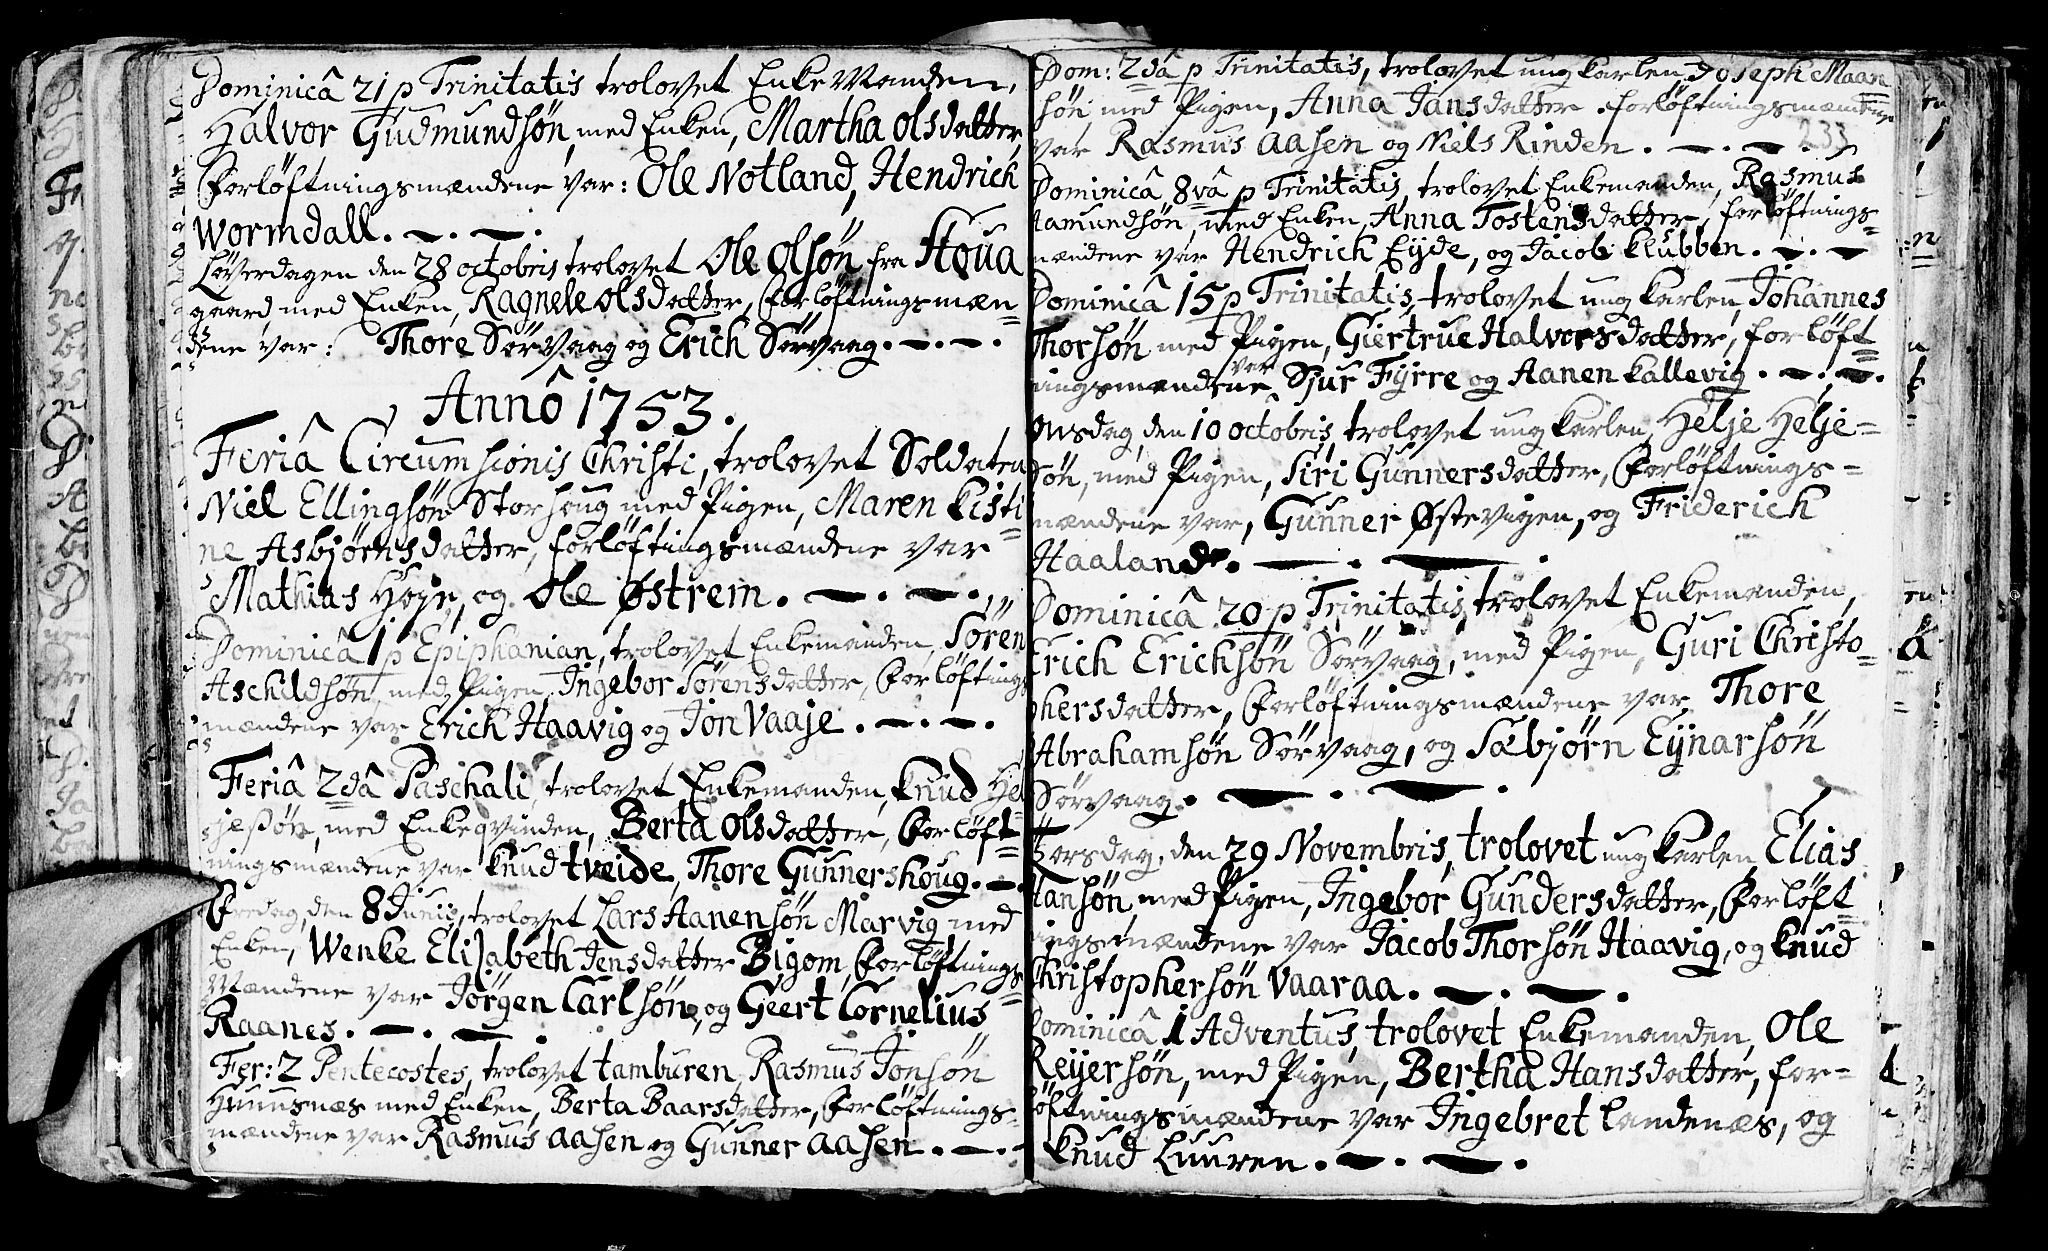 Dominicâ 21 p Trinitatis trolovet EnkeManden,
Halvor Gudmundsøn, med Enken, Martha olsdatter,
Forløftningsmændene var: Ole Notland, Hendrich
Wormdall.
Løverdagen den 28 octobris trolovet Ole Olsøn fra Houa
gaard med Enken, Ragnele olsdatter, Forløftningsmæn=
dene var: Thore Sørvaag og Erich Sørvaag.
Annô 1753.
Feriâ Circumsionis Christi, trolovet Soldaten
Niel Ellingsøn Storhoug med Pigen, Maren Kisti=
ne Asbjørnsdatter, forløftingsmændene var
Mathias Høye, og Ole Østrem.
Dominicâ 1 p Epiphanian, trolovet Enkemanden, Søren
Aschildsøn, med Pigen, Ingebor Sørensdatter, Forløftings
mændene var Erich Haavig og Jon Vaaje.
Feriâ 2dâ Paschali, trolovet Enkemanden, Knud Hel=
jesøn, med Enkeqvinden, Berta Olsdatter, Forløft=
ningsmændene var Knud tveide, Thore Gunnershoug.
Fredag, den 8 Junii, trolovet Lars Aanensøn Marvig med
Enken, Wenke Elisabeth Jensdatter Bigom, Forløftnings=
Mændene var Jörgen Carlsøn, og Geert Cornelius
Raanes.
Fer: 2 Pentecostes, trolovet tamburen, Rasmus Jonsøn
Huusnæs med Enken, Berta Baarsdatter, Forløftnings=
mændene var Rasmus Aasen og Gunner Aasen.
Dom: 2dâ p Trinitatis, trolovet ungkarlen, Joseph Maan=
søn med Pigen, Anna Jansdatter. forløftningsmændene
var Rasmus Aasen og Niels Rinden.
233
Dominicâ 8vâ p Trinitatis, trolovet Enkemanden, Rasmus
Aamundsøn, med Enken, Anna Tostensdatter, forløftnings=
mændene var Hendrich Eyde, og Jacob Klubben.
Dominicâ 15 p Trinitatis, trolovet ungkarlen, Johannes
Thorsøn med Pigen, Giertrue Halvorsdatter, forløft=
ningsmændene var Sjur Fyrre og Aanen Kallevig.
Onsdag, den 10 octobris, trolovet ungkarlen, Helje Helje=
søn, med Pigen, Siri Gunnersdatter, Forløftnings=
mændene var, Gunner Østevigen, og Friderich
Haaland.
Dominicâ 20 p Trinitatis, trolovet Enkemanden,
Erich Erichsøn Sørvaag, med Pigen, Guri Christo=
phersdatter, Forløftningsmændene var, Thore
Abrahamsøn Sørvaag, og Sæbjørn Eynarsøn
Sørvaag.
Torsdag, den 29 Novembris, trolovet ungkarlen, Elias
Hansøn, med Pigen, Ingebor Gundersdatter, Forløft=
ingsmændene var Jacob Thorsøn Haavig, og Knud
Christophersøn Vaaraa.
Dominicâ 1 Adventus, trolovet Enkemanden, Ole
Reijersøn, med Pigen, Bertha Hansdatter, for=
løftningsmændene var Ingebret landenæs, og
Knud Luuren.